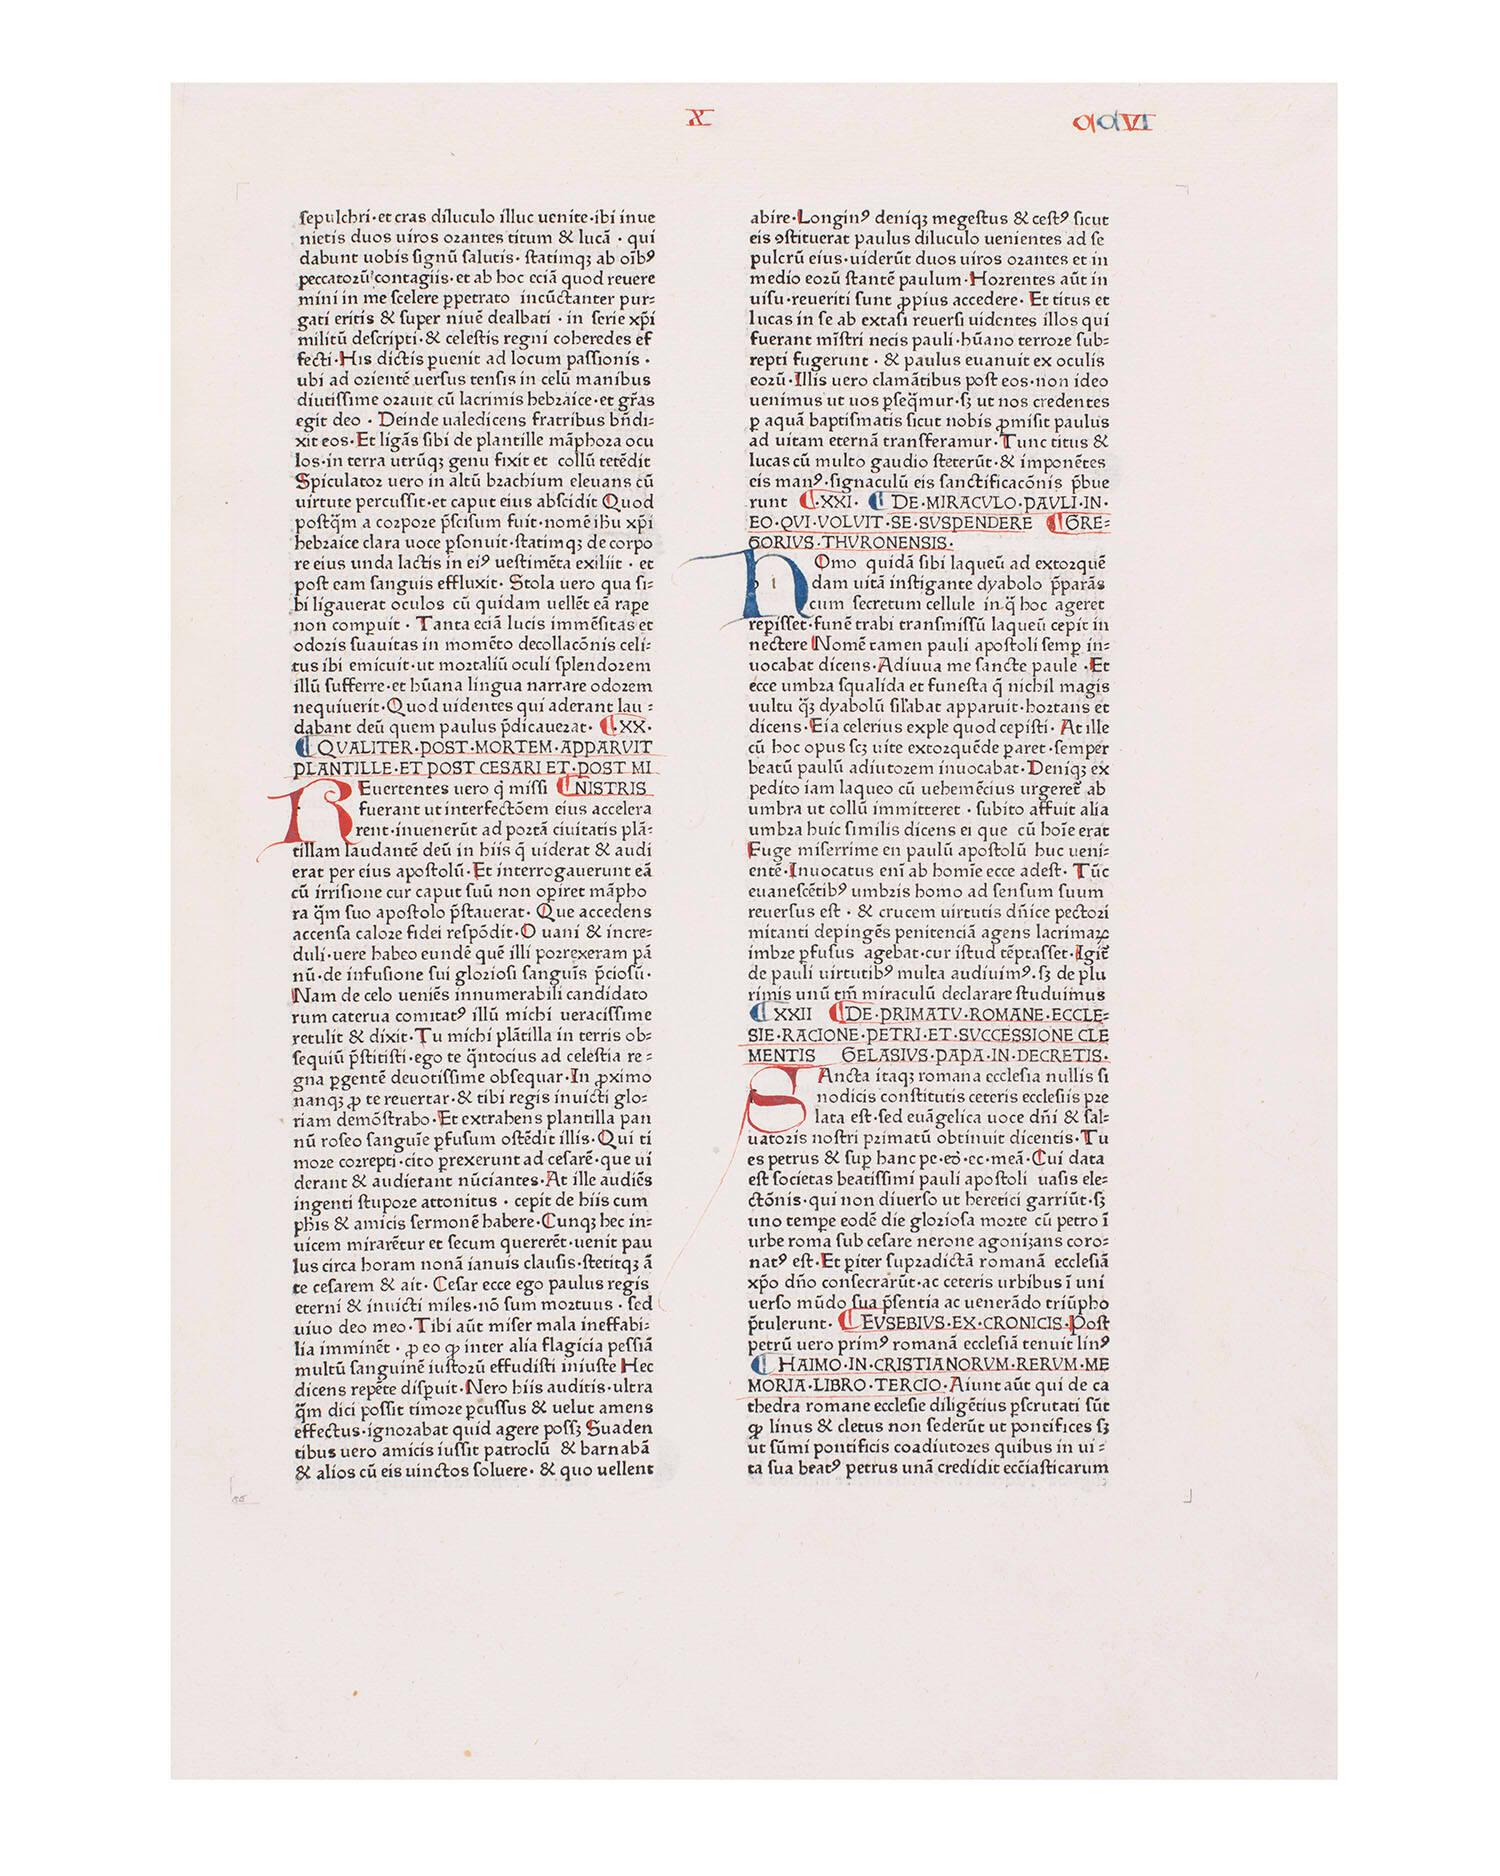 X
CCVI
ſepulchri·et cras diluculo illuc uenite·ibi inue
nietis duos uiros orantes titum & lucā · qui
dabunt uobis ſignū ſalutis· ſtatimqꝫ ab oībꝰ
peccatoꝝ contagiis·et ab hoc eciā quod reuere
mini in me ſcelere ꝑpetrato incūctanter pur⸗
gati eritis & ſuper niuē dealbati · in ſerie xp̄i
militū deſcripti·& celeſtis regni coheredes ef
fecti·His dictis ꝑuenit ad locum paſſionis ·
ubi ad orientē uerſus tenſis in celū manibus
diutiſſime orauit cū lacrimis hebraice·et grās
egit deo · Deinde ualedicens fratribus bn̄di⸗
xit eos·Et ligās ſibi de plantille māphora ocu
los·in terra utrūqꝫ genu fixit et collū tetēdit
Spiculator uero in altū brachium eleuans cū
uirtute percuſſit·et caput eius abſcidit Quod
poſtq̄m a corpore p̄ſciſum fuit·nomē ihu xp̄i
hebraice clara uoce ꝑſonuit·ſtatimqꝫ de corpo
re eius unda lactis in eiꝰ ueſtimēta exiliit · et
poſt eam ſanguis effluxit· Stola uero qua ſi⸗
bi ligauerat oculos cū quidam uellēt eā raꝑe
non comꝑuit · Tanta eciā lucis immēſitas et
odoris ſuauitas in momēto decollacōnis celi⸗
tus ibi emicuit·ut mortaliū oculi ſplendorem
illū ſufferre·et hūana lingua narrare odorem
nequiuerit·Quod uidentes qui aderant lau⸗
dabant deū quem paulus p̄dicauerat· ¶·XX·
¶ QVALITER·POST·MORTEM·APPARVIT
PLANTILLE·ET POST CESARI ET·POST MI
REuertentes uero q̄ miſſi ¶NISTRIS
fuerant ut interfectōem eius accelera
rent·inuenerūt ad portā ciuitatis plā⸗
tillam laudantē deū in hiis q̄ uiderat & audi
erat per eius apoſtolū·Et interrogauerunt eā
cū irriſione cur caput ſuū non oꝑiret māpho
ra q̄m ſuo apoſtolo p̄ſtauerat· Que accedens
accenſa calore fidei reſpōdit·O uani & incre⸗
duli·uere habeo eundē quē illi porrexeram pā
nū·de infuſione ſui glorioſi ſanguīs p̄cioſū·
Nam de celo ueniēs innumerabili candidato
rum caterua comitatꝰ illū michi ueraciſſime
retulit & dixit·Tu michi plātilla in terris ob⸗
ſequiū p̄ſtitiſti·ego te q̄ntocius ad celeſtia re⸗
gna ꝑgentē deuotiſſime obſequar·In ꝓximo
nanqꝫ ꝓ te reuertar·& tibi regis inuicti glo⸗
riam demōſtrabo·Et extrahens plantilla pan
nū roſeo ſanguīe ꝑfuſum oſtēdit illis·Qui ti
more correpti·cito ꝑrexerunt ad ceſarē·que ui
derant & audierant nūciantes·At ille audiēs
ingenti ſtupore attonitus · cepit de hiis cum
phis & amicis ſermonē habere·Cunqꝫ hec in⸗
uicem mirarētur et ſecum quererēt·uenit pau
lus circa horam nonā ianuis clauſis·ſtetitqꝫ ā
te ceſarem & ait· Ceſar ecce ego paulus regis
eterni & inuicti miles·nō ſum mortuus · ſed
uiuo deo meo·Tibi aūt miſer mala ineffabi⸗
lia imminēt · ꝓ eo ꝙ inter alia flagicia peſſiā
multū ſanguinē iuſtorū effudiſti iniuſte Hec
dicens repēte diſꝑuit·Nero hiis auditis·ultra
q̄m dici poſſit timore ꝑcuſſus & uelut amens
effectus·ignorabat quid agere poſſꝫ Suaden
tibus uero amicis iuſſit patroclū & barnabā
& alios cū eis uinctos ſoluere· & quo uellent
abire·Longinꝰ deniqꝫ megeſtus & ceſtꝰ ſicut
eis ꝯſtituerat paulus diluculo uenientes ad ſe
pulcrū eius·uiderūt duos uiros orantes et in
medio eorū ſtantē paulum·Horrentes aūt in
uiſu·reueriti ſunt ꝓpius accedere· Et titus et
lucas in ſe ab extaſi reuerſi uidentes illos qui
fuerant miſtri necis pauli·hūano terrore ſub⸗
repti fugerunt · & paulus euanuit ex oculis
eorū·Illis uero clamātibus poſt eos·non ideo
uenimus ut uos ꝑſeq̄mur·ſꝫ ut nos credentes
ꝑ aquā baptiſmatis ſicut nobis ꝓmiſit paulus
ad uitam eternā tranſferamur·Tunc titus &
lucas cū multo gaudio ſteterūt·& imponētes
eis manꝰ·ſignaculū eis ſanctificacōnis p̄bue
runt ¶·XXI· ¶ DE·MIRACVLO·PAVLI·IN·
EO·QVI·VOLVIT·SE·SVSPENDERE ¶GRE⸗
GORIVS·THVRONENSIS·
HOmo quidā ſibi laqueū ad extorquē
dam uitā inſtigante dyabolo p̄parās
cum ſecretum cellule in q̄ hoc ageret
repiſſet·funē trabi tranſmiſſū laqueū cepit in
nectere Nomē tamen pauli apoſtoli ſemꝑ in⸗
uocabat dicens·Adiuua me ſancte paule ·Et
ecce umbra ſqualida et funeſta q̄ nichil magis
uultu q̄ꝫ dyabolū ſiľabat apparuit·hortans et
dicens·Eia celerius exple quod cepiſti· At ille
cū hoc opus ſcꝫ uite extorquēde ꝑaret·ſemper
beatū paulū adiutorem inuocabat·Deniqꝫ ex
pedito iam laqueo cū uehemēcius urgeret̄ ab
umbra ut collū immitteret · ſubito affuit alia
umbra huic ſimilis dicens ei que cū hoīe erat
Fuge miſerrime en paulū apoſtolū huc ueni⸗
entē·Inuocatus enī ab homīe ecce adeſt· Tūc
euaneſcētibꝰ umbris homo ad ſenſum ſuum
reuerſus eſt · & crucem uirtutis dn̄ice pectori
mitanti depingēs penitenciā agens lacrimaꝝ
imbre ꝑfuſus agebat·cur iſtud tēptaſſet·Igit̄
de pauli uirtutibꝰ multa audiuimꝰ·ſꝫ de plu
rimis unū tm̄ miraculū declarare ſtuduimus
¶ XXII ¶DE·PRIMATV·ROMANE·ECCLE⸗
SIE·RACIONE·PETRI·ET·SVCCESSIONE CLE
MENTIS GELASIVS·PAPA·IN·DECRETIS·
SAncta itaqꝫ romana eccleſia nullis ſi
nodicis conſtitutis ceteris eccleſiis pre
lata eſt·ſed euāgelica uoce dn̄i & ſal⸗
uatoris noſtri primatū obtinuit dicentis·Tu
es petrus & ſuꝑ hanc pe·eō·ec·meā·Cui data
eſt ſocietas beatiſſimi pauli apoſtoli uaſis ele⸗
ctōnis·qui non diuerſo ut heretici garriūt·ſꝫ
uno temꝑe eodē die glorioſa morte cū petro ī
urbe roma ſub ceſare nerone agoniꝫans coro⸗
natꝰ eſt·Et ꝑiter ſupradictā romanā eccleſiā
xp̄o dn̄o conſecrarūt·ac ceteris urbibus ī uni
uerſo mūdo ſua p̄ſentia ac uenerādo triūpho
p̄tulerunt· ¶EVSEBIVS·EX·CRONICIS·Poſt
petrū uero primꝰ romanā eccleſiā tenuit linꝰ
¶ HAIMO·IN·CRISTIANORVM·RERVM·ME
MORIA·LIBRO·TERCIO·Aiunt aūt qui de ca
thedra romane eccleſie diligētius ꝑſcrutati ſūt
ꝙ linus & cletus non ſederūt ut pontifices ſꝫ
ut ſūmi pontificis coadiutores quibus in ui⸗
ta ſua beatꝰ petrus unā credidit ecc̄iaſticarum